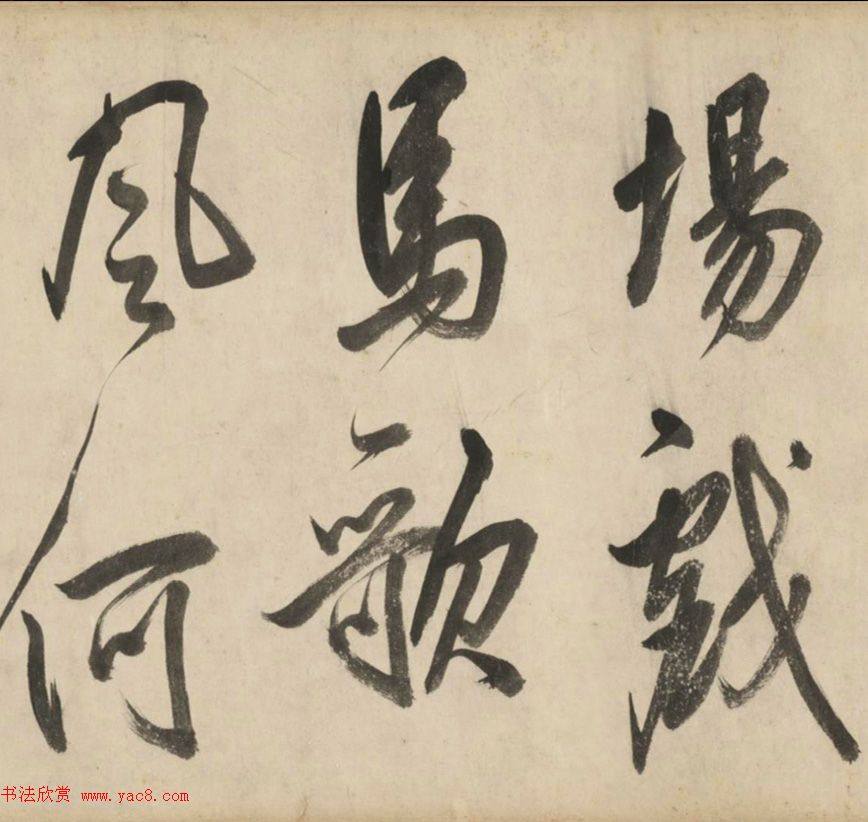 場戲
馬歌
風何
书法欣赏 www.yac8.com